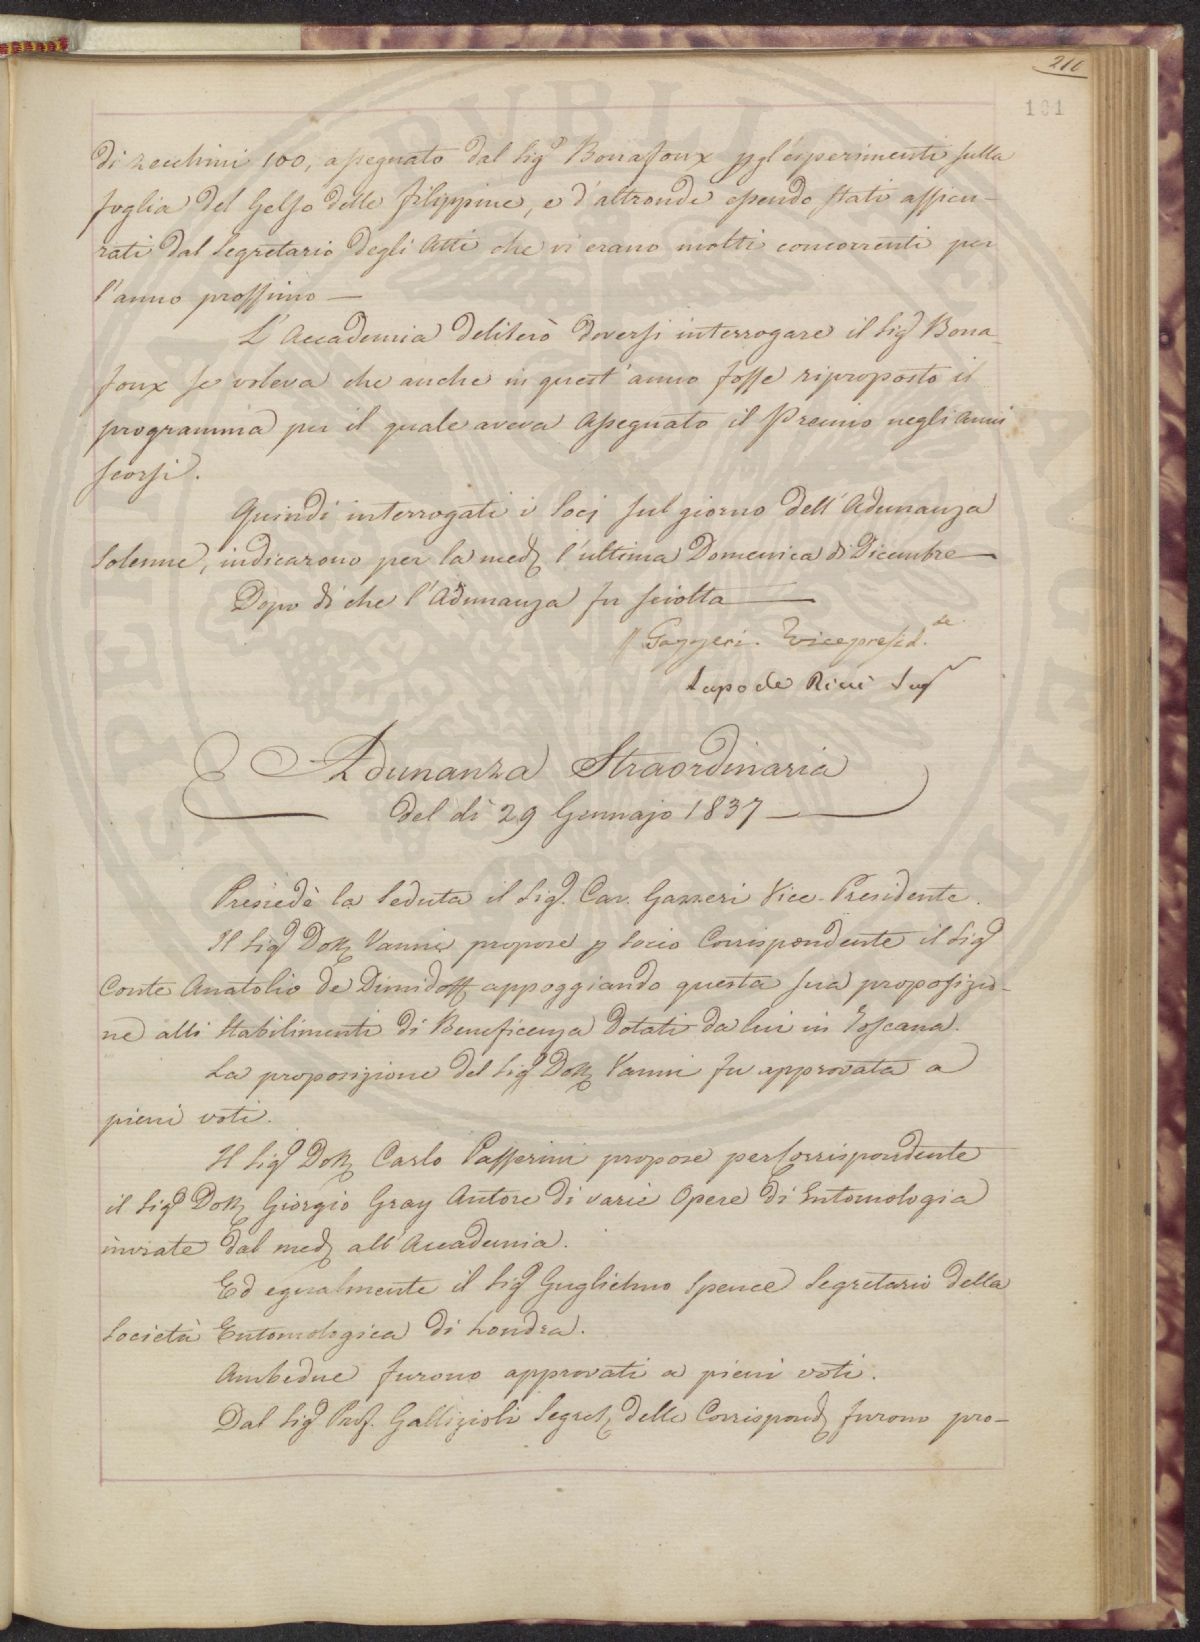 210
101
di zecchini 100, assegnato dal Sigr Bonafoux pgl'esperimenti sulla
foglia del Gelso delle Filippine, e d'altronde essendo stati assicu-
rati dal Segretario degli Atti che vi erano molti concorrenti per
l'anno prossimo —
L'Accademia deliberò doversi interrogare il Sigr Bona-
foux se voleva che anche in quest'anno fosse riproposto il
programma per il quale aveva assegnato il Premio negli anni
scorsi.
Quindi interrogati i Socj sul giorno dell'Adunanza
Solenne, indicarono per la med. l'ultima Domenica di Dicembre —
Dopo di che l'Adunanza fu sciolta —
Gazzeri Vicepresid.te
Lapo de Ricci Seg
Adunanza Straordinaria
del dì 29 Gennajo 1837 —
Presiedè la Seduta il Sigr. Cav. Gazzeri Vice-Presidente.
Il Sigr Dott. Vanni propose p Socio Corrispondente il Sigr
Conte Anatolio de Dimidoff appoggiando questa sua proposizio-
ne alli Stabilimenti di Beneficenza dotati da lui in Toscana.
La proposizione del Sigr Dott. Vanni fu approvata a
pieni voti.
Il Sigr Dott. Carlo Passerini propose per Corrispondente
il Sigr Dott. Giorgio Gray Autore di varie Opere di Entomologia
inviate dal med. all'Accademia.
Ed egualmente il Sigr Guglielmo Spence Segretario della
Società Entomologica di Londra.
Ambedue furono approvati a pieni voti.
Dal Sigr Prof. Gallizioli Segret. delle Corrispond. furono pro-